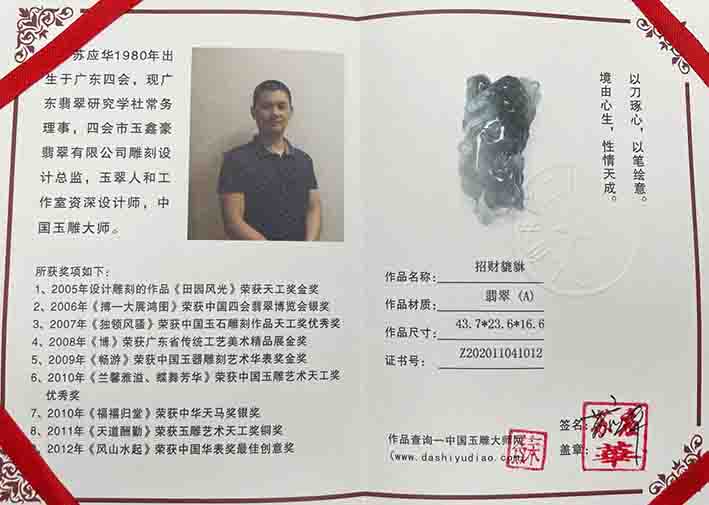 苏应华1980年出
生于广东四会，现广
东翡翠研究学社常务
理事，四会市玉鑫豪
翡翠有限公司雕刻设
计总监，玉翠人和工
作室资深设计师，中
国玉雕大师。
所获奖项如下：
1、2005年设计雕刻的作品《田园风光》荣获天工奖金奖
2、2006年《搏一大展鸿图》荣获中国四会翡翠博览会银奖
3、2007年《独领风骚》荣获中国玉石雕刻作品天工奖优秀奖
4、2008年《博》荣获广东省传统工艺美术精品展金奖
5、2009年《畅游》荣获中国玉器雕刻艺术华表奖金奖
6、2010年《兰馨雅溢、蝶舞芳华》荣获中国玉雕艺术天工奖
优秀奖
7、2010年《福禧归堂》荣获中华天马奖银奖
8、2011年《天道酬勤》荣获玉雕艺术天工奖铜奖
9、2012年《风山水起》荣获中国华表奖最佳创意奖
以刀琢心，以笔绘意。
境由心生，性情天成。
作品名称：招财貔貅
作品材质：翡翠（A）
作品尺寸：43.7*23.6*16.6
证书号：Z202011041012
签名：
盖章：
華
作品查询一中国玉雕大师网
(www.dashiyudiao.com)